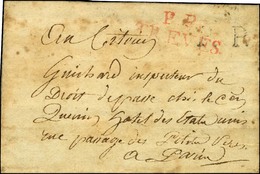 P.P.
TREVES
R
Au Citoyen
Guichard inspecteur du
Droit de passe chés le Cen
hôtel des Etats unis
rue passage des Petits Peres
a Paris